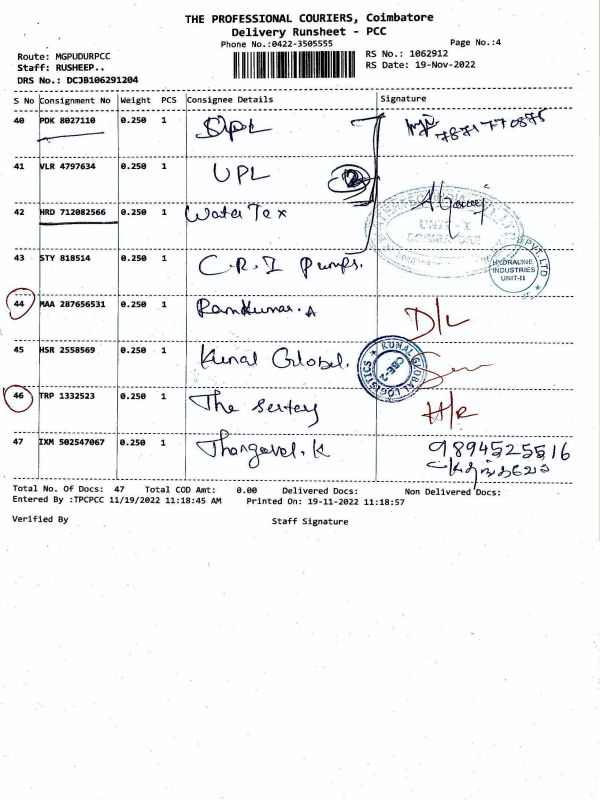 THE PROFESSIONAL COURIERS, Coimbatore
Delivery Runsheet - PCC
Phone No.:0422-3505555
Page No.:4
Route: MGPUDURPCC
RS No.: 1062912
Staff: RUSHEEP..
RS Date: 19-Nov-2022
DRS No.: DCJB106291204
S No Consignment No Weight PCS Consignee Details Signature
40 PDK 8027110 0.250 1 7871770875
41 VLR 4797634 0.250 1 UPL
42 HRD 712082566 0.250 1 Water Tex
43 STY 818514 0.250 1 C.R.I Pumps.
HYDRALINE
INDUSTRIES
UNIT-II
PVT. LTD
44 MAA 287656531 0.250 1 Ramkumar. A D/L
45 HSR 2558569 0.250 1 Kunal Global.
KUNAL GLOBAL LOGISTICS
CBE-2
46 TRP 1332523 0.250 1 The H/R
47 IXM 502547067 0.250 1 Thangavel. K 9894525516
Total No. Of Docs: 47 Total COD Amt: 0.00 Delivered Docs: Non Delivered Docs:
Entered By :TPCPCC 11/19/2022 11:18:45 AM Printed On: 19-11-2022 11:18:57
Verified By Staff Signature